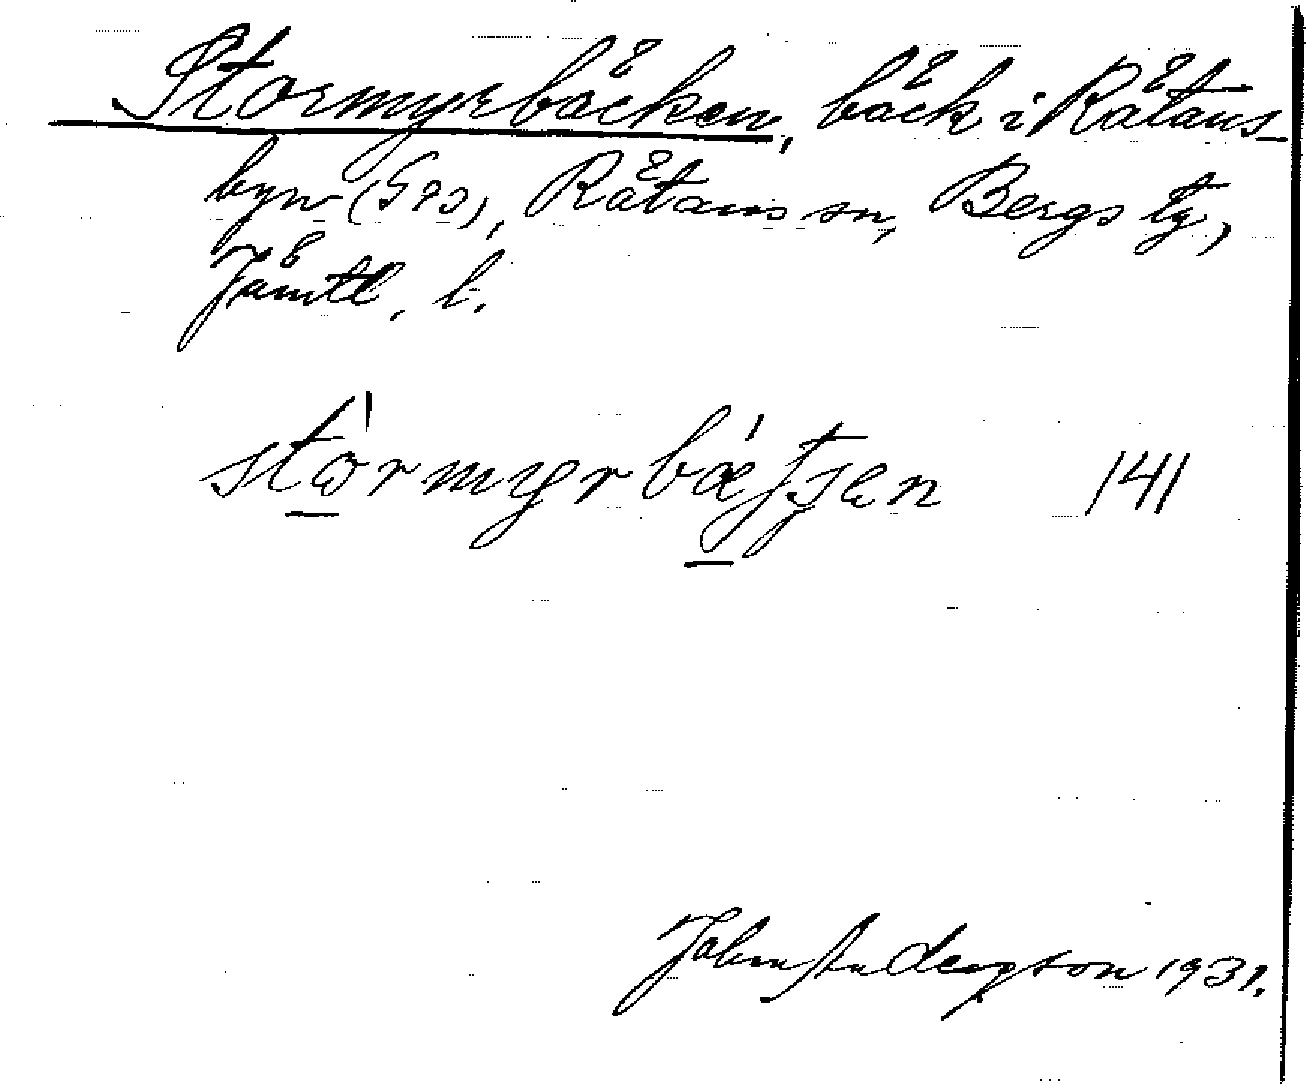 Stormyrbäcken, bäck i Rätans-
byn (GPS), Rätans sn, Bergs tg,
Jämtl. l.
stòrmyrbæʃʃen 141
John Andersson 1931.